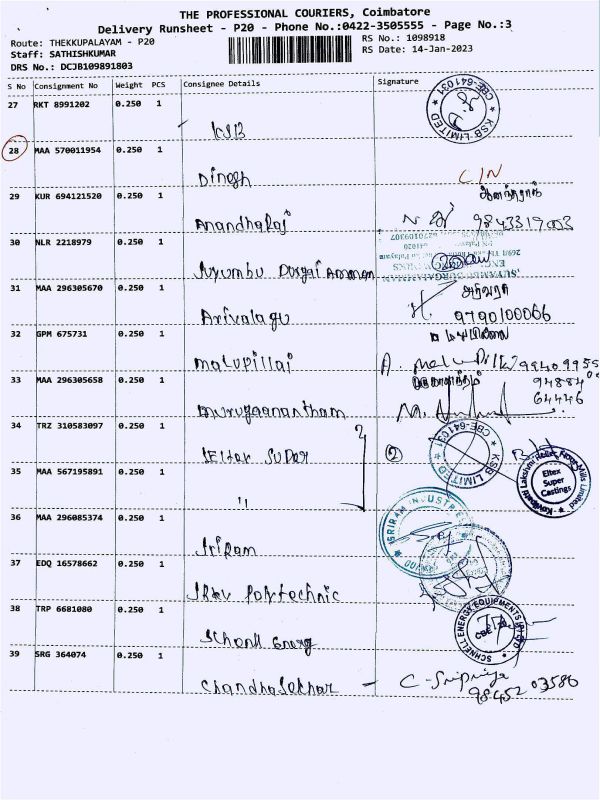 THE PROFESSIONAL COURIERS, Coimbatore
Delivery Runsheet - P20 - Phone No.:0422-3505555 - Page No.:3
Route: THEKKUPALAYAM - P20
RS No.: 1098918
Staff: SATHISHKUMAR
RS Date: 14-Jan-2023
DRS No.: DCJB109891803
S No Consignment No Weight PCS Consignee Details Signature
27 RKT 8991202 0.250 1
KSB
KSB LIMITED CBE-641031
28 MAA 570011954 0.250 1
Dinesh
29 KUR 694121520 0.250 1
Anandharaj
9843319003
30 NLR 2218979 0.250 1
Suyumbu Durgai Amman
31 MAA 296305670 0.250 1
Arivalagu
9790100066
32 GPM 675731 0.250 1
Malupillai
33 MAA 296305658 0.250 1
Murugaanantham
64446
34 TRZ 310583097 0.250 1
Eltex Super
2
KSB LIMITED CBE-641031
Eltex Super Castings
35 MAA 567195891 0.250 1
"
36 MAA 296085374 0.250 1
Sriram
SRIRAM INDUSTRIE
37 EDQ 16578662 0.250 1
Polytechnic
38 TRP 6681080 0.250 1
SCHNELL ENERGY EQUIPMENTS (P) LTD
39 SRG 364074 0.250 1
Chandhasekhar - C-Sripriya
98452 03586